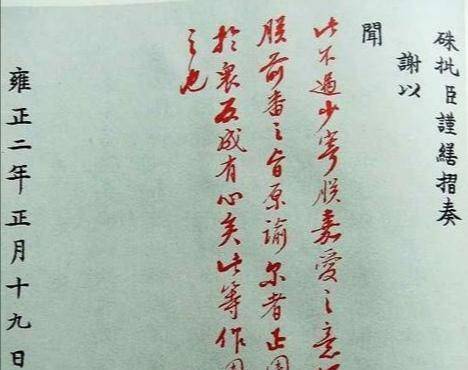 硃批臣謹繕摺奏
謝以
聞
此不過少寄朕嘉愛之意
朕前番之旨原諭尔者正
於衷反成有心矣此等作
之也
雍正二年正月十九日